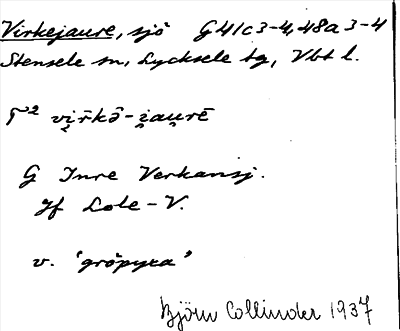 Virkejaure, sjö G 41c3-4, 48a3-4
Stensele sn, Lycksele tg, Vbt l.
T² vi̯r̄kō̂-i̯au̯rē
G Inre Verkansj.
Jf Lole-V.
v. 'gröpyxa'
Björn Collinder 1937